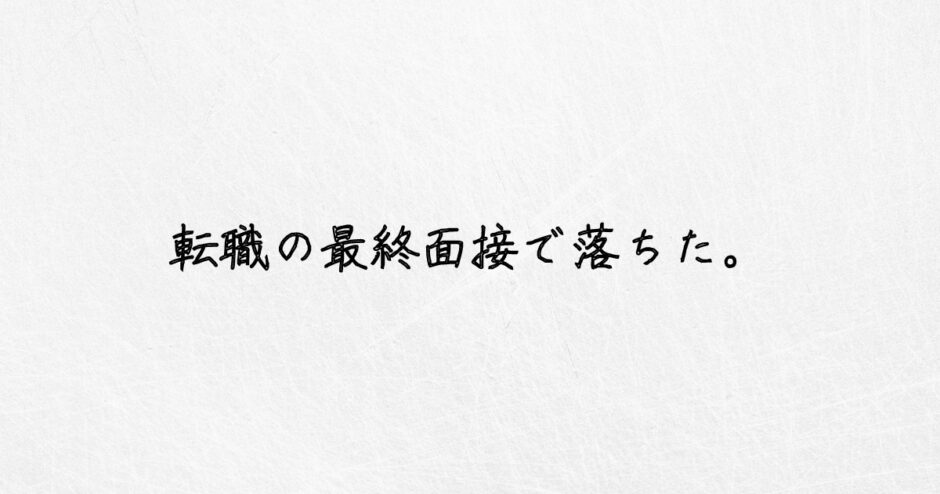 転職の最終面接で落ちた。